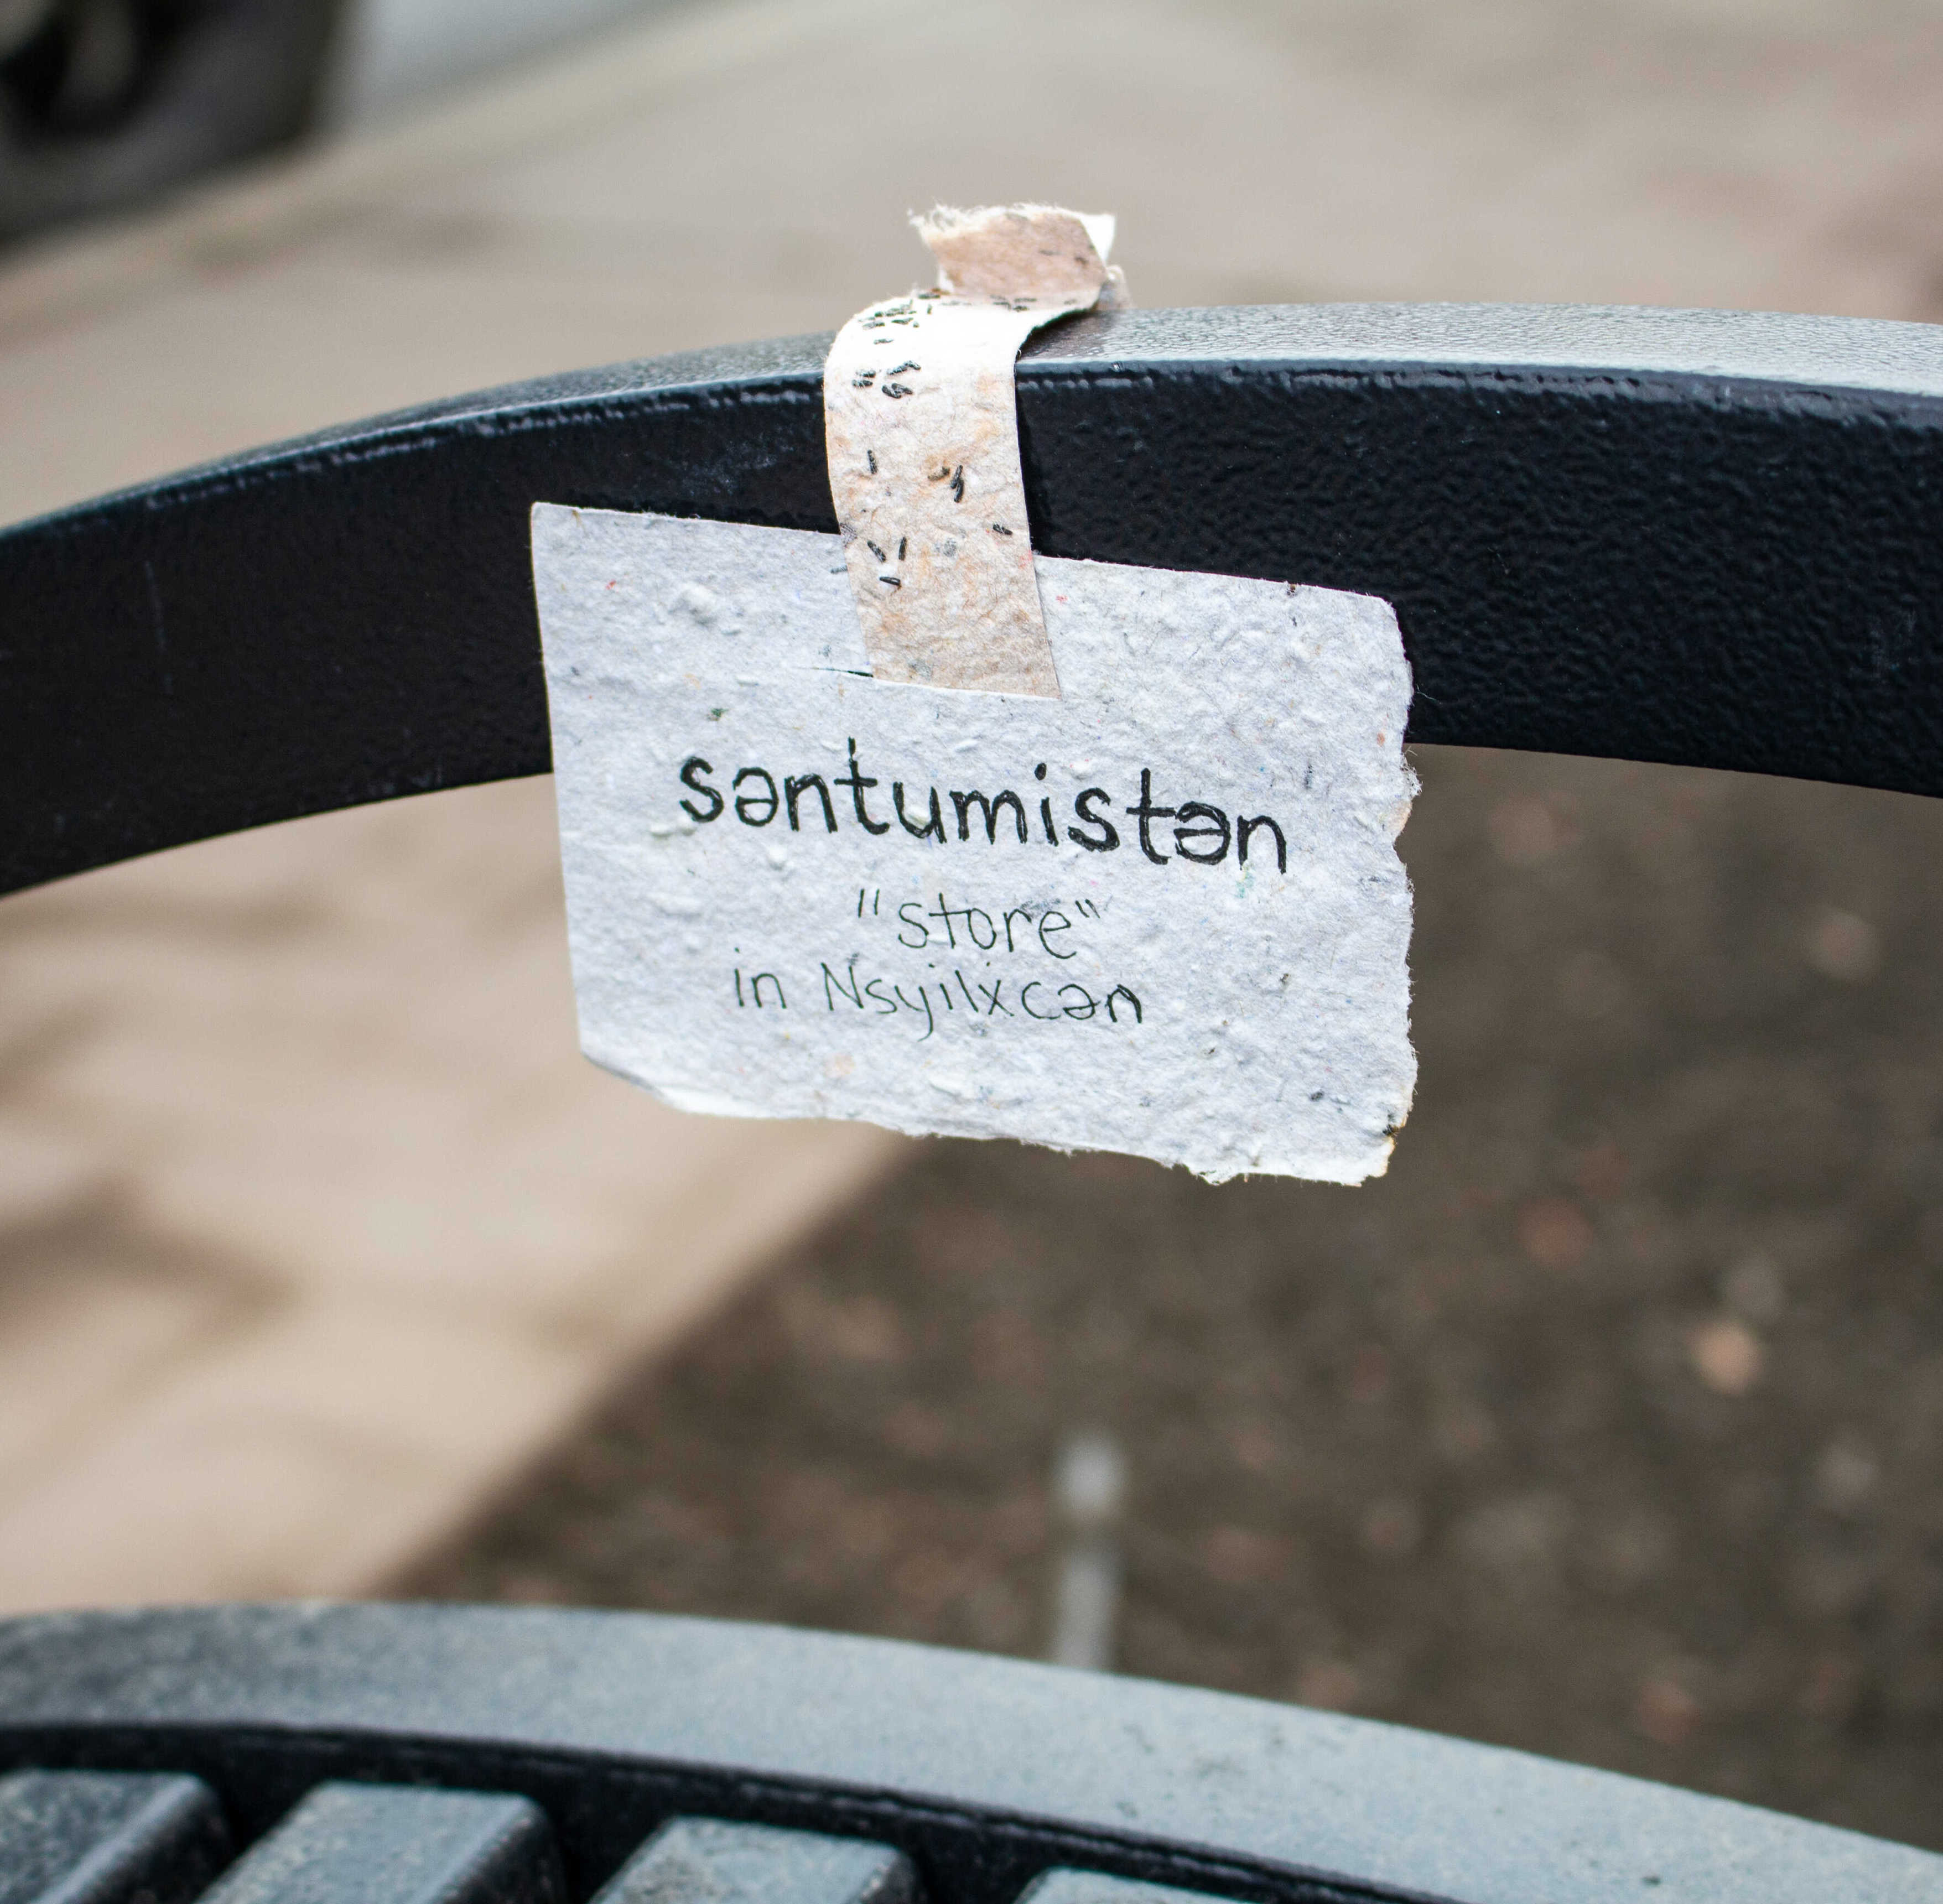 səntumistən
"store"
in Nsyilxcən